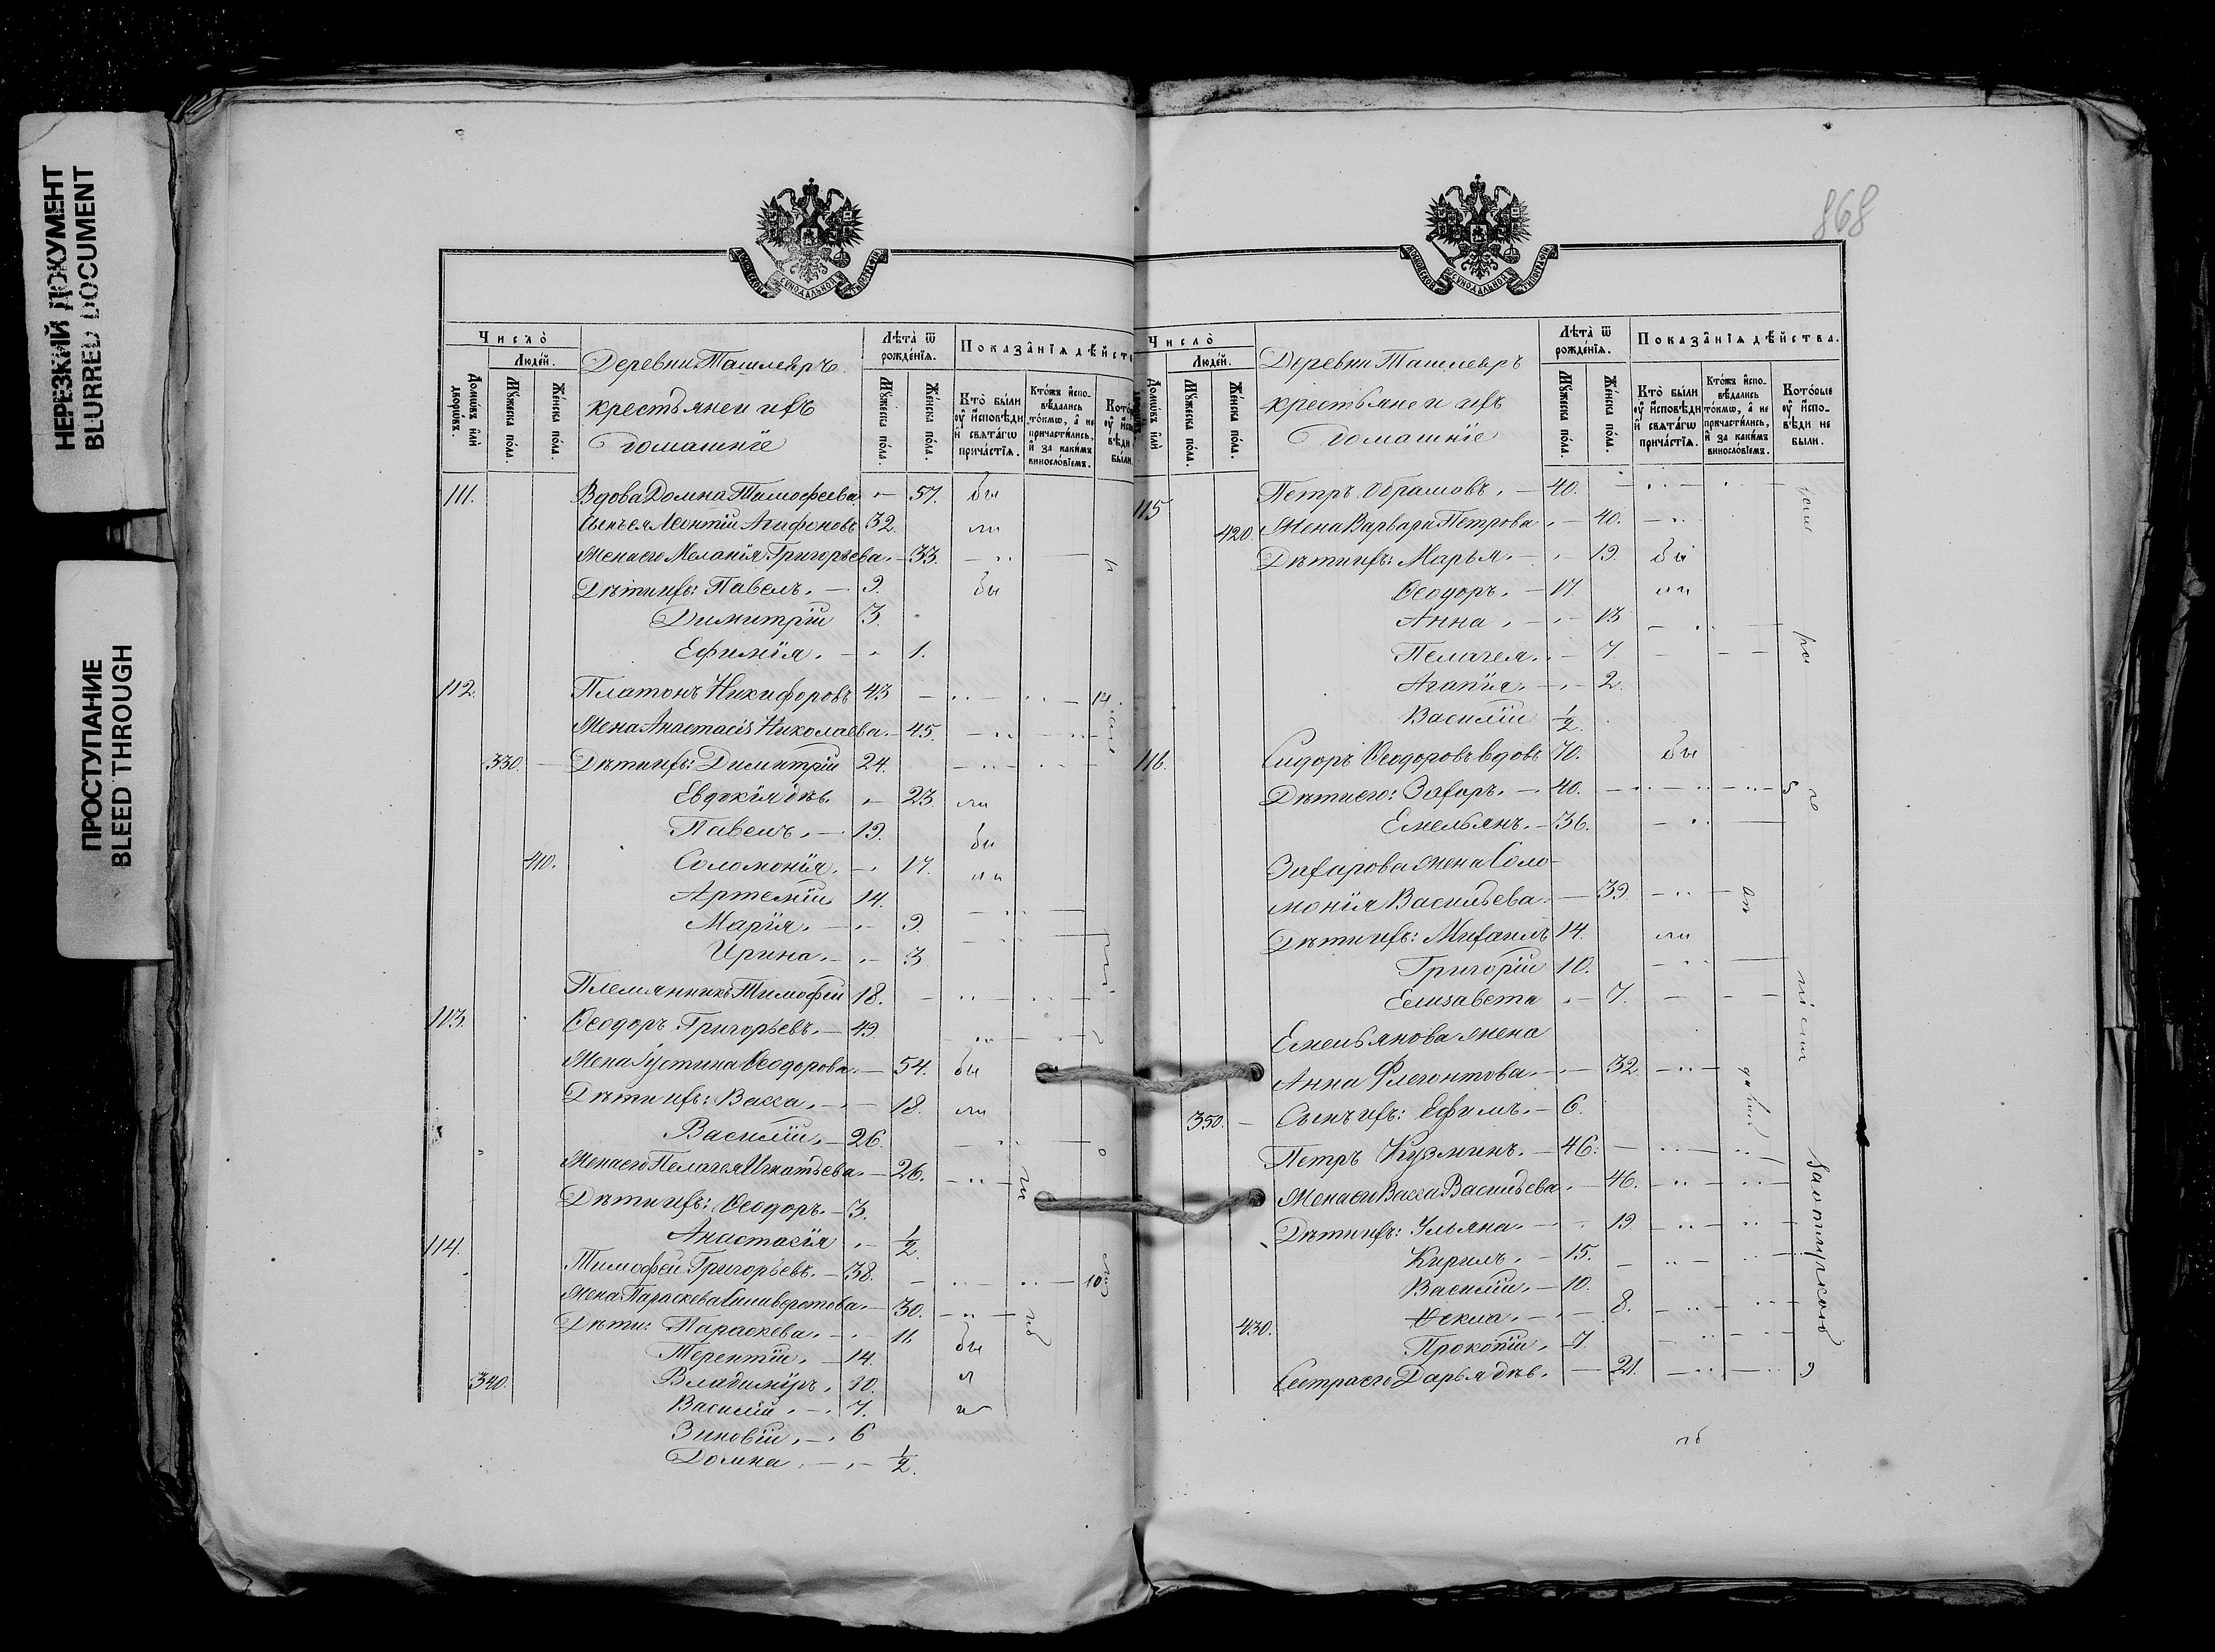 НЕРЕЗКИЙ ДОКУМЕНТ
BLURRED DOCUMENT
ПРОСТУПАНИЕ
BLEED THROUGH
МОСКОВСКОЙ СѴНОДАЛЬНОЙ ТИПОГРАФІИ
Число̀
Людей.
Домѡвъ илѝ дворѡвъ.
Мꙋжеска пола.
Женска пола.
Деревни Ташлеяръ
крестьяне и ихъ
домашніе
Лѣта̀ ѿ рожденїѧ.
Мꙋжеска пола.
Женска пола.
Кто̀ были ᲂу҆ и҆сповѣди и҆ свѧтагѡ причастїѧ.
Ктожъ и҆сповѣдались токмѡ, а҆ не причастились, и҆ за какимъ винословїемъ.
111. Вдова Домна Тимофеева - 57. бы
Сынъ ея Леонтій Агафоновъ 32. ли
Жена его Меланія Григорьева - 33.
Дѣти ихъ: Павелъ. - 9. бы
Димитрій 3.
Ефимія. - 1.
112. Платонъ Никифоровъ 43
Жена Анастасія Николаева - 45.
330. Дѣти ихъ: Димитрій 24.
Евдокія дѣв. - 23 ли
Павелъ. - 19. бы
410. Соломонія. - 17. ли
Артемій 14.
Марія. - 9.
Ирина. - 3
Племянникъ Тимофей 18.
113. Ѳеодоръ Григорьевъ. - 49.
Жена Іустина Ѳеодорова. - 54. бы
Дѣти ихъ: Васса. - 18. ли
Василій. - 26.
Жена его Пелагея Игнатьева. - 26.
Дѣти ихъ: Ѳеодоръ. - 3.
Анастасія - 1/2.
114. Тимофей Григорьевъ. - 38.
Жена Параскева Силиверстова. - 30.
Дѣти: Параскева. - 11. бы
Терентій. - 14.
340. Владиміръ. 10.
Василій. - 7.
Зиновій. - 6
Домна. - 1/2.
868
МОСКОВСКОЙ СѴНОДАЛЬНОЙ ТИПОГРАФІИ
Число̀
Людей.
Домѡвъ илѝ дворѡвъ.
Мꙋжеска пола.
Женска пола.
Деревни Ташлеяръ
крестьяне и ихъ
домашніе
Лѣта̀ ѿ рожденїѧ.
Мꙋжеска пола.
Женска пола.
Показанїѧ дѣйства.
Кто̀ были ᲂу҆ и҆сповѣди и҆ свѧтагѡ причастїѧ.
Ктожъ и҆сповѣдались токмѡ, а҆ не причастились, и҆ за какимъ винословїемъ.
Которые ᲂу҆ и҆сповѣди не были.
115 Петръ Абрамовъ. - 40.
420. Жена Варвара Петрова - 40.
Дѣти ихъ: Марья. - 19. бы
Ѳеодоръ. - 17. ли
Анна. - 13
Пелагея. - 7
Агапія. - 2.
Василій 1/2.
116. Сидоръ Ѳеодоровъ вдовъ 70. бы
Дѣти его: Захаръ. - 40.
Емельянъ. - 36.
Захарова жена Соло-
монія Васильева. - 39.
Дѣти ихъ: Михаилъ 14. ли
Григорій 10.
Елизавета - 7.
Емельянова жена
Анна Флегонтова. - 32.
350. Сынъ ихъ: Ефимъ. - 6.
Петръ Кузминъ. - 46.
Жена его Васса Васильева. - 46.
Дѣти ихъ: Ульяна. - 19.
Кирилъ. - 15.
Василій. - 10.
430. Ѳекла. - 8.
Прокопій. - 7.
Сестра его Дарья дѣв. - 21.